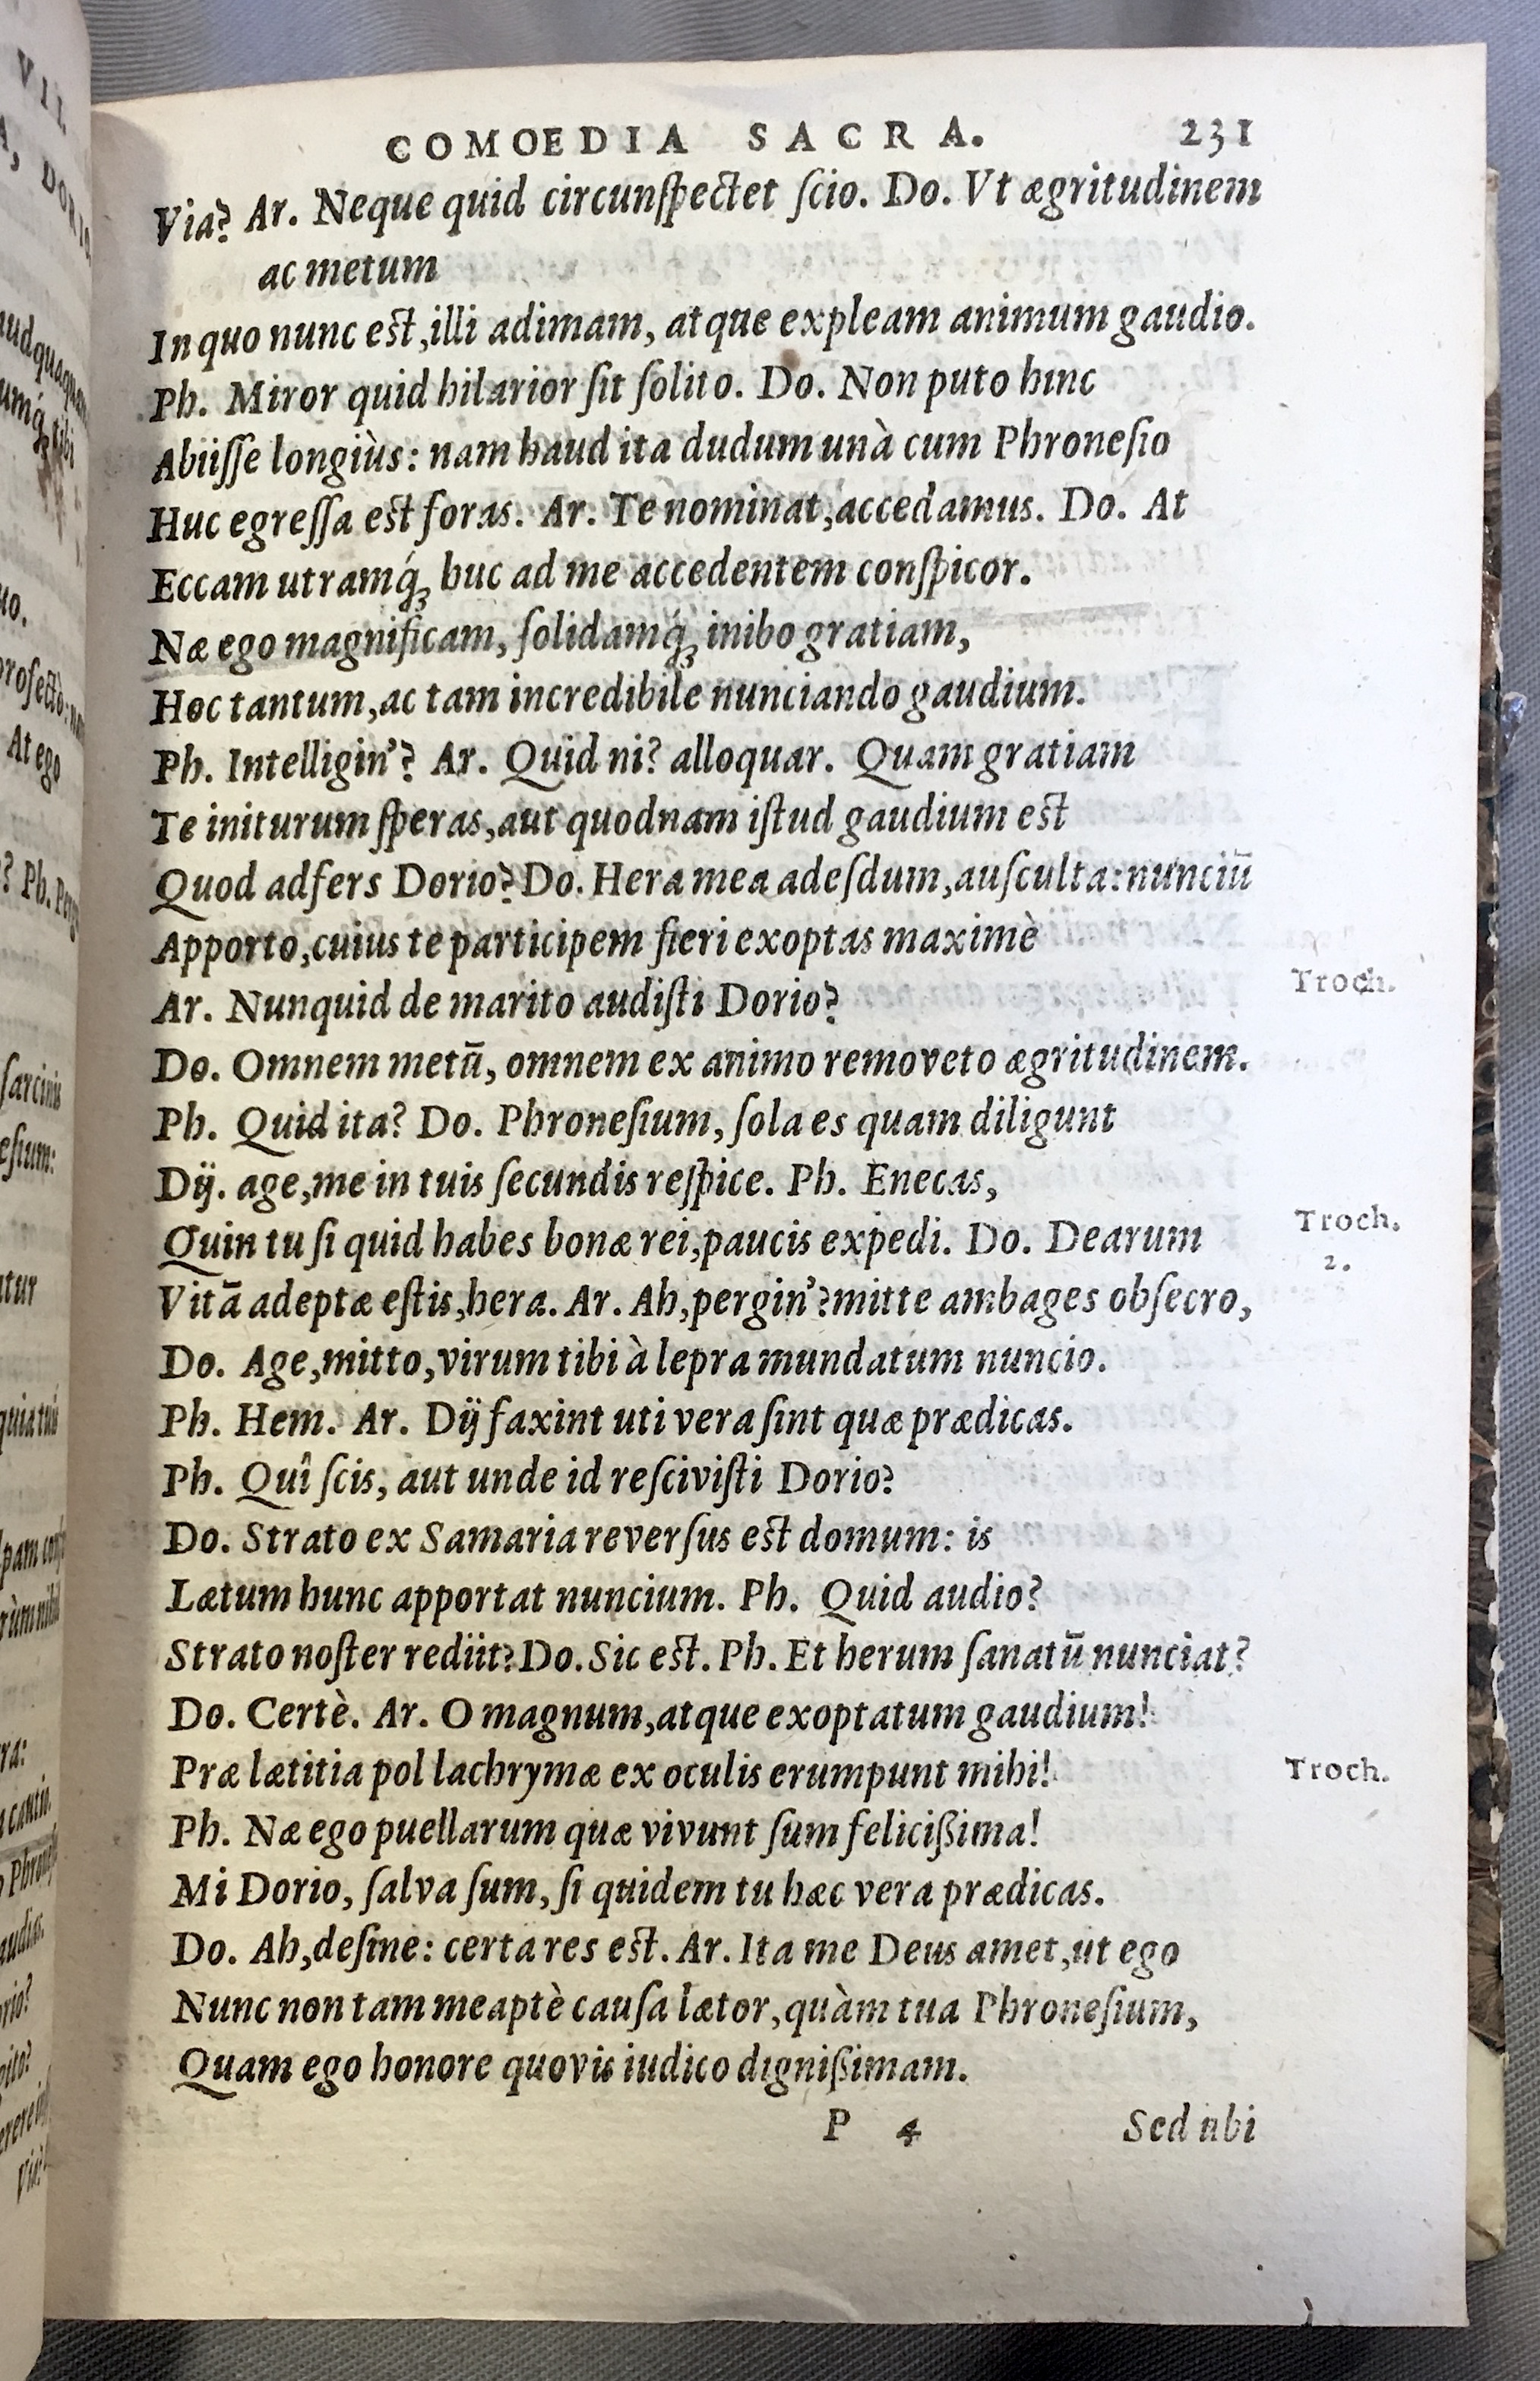 COMOEDIA SACRA. 231
Via? Ar. Neque quid circunſpectet ſcio. Do. Vt ægritudinem
ac metum
In quo nunc eſt, illi adimam, atque expleam animum gaudio.
Ph. Miror quid hilarior ſit ſolito. Do. Non puto hinc
Abiiſſe longiùs: nam haud ita dudum unà cum Phroneſio
Huc egreſſa eſt foras. Ar. Te nominat, accedamus. Do. At
Eccam utramq́; huc ad me accedentem conſpicor.
Næ ego magnificam, ſolidamq́; inibo gratiam,
Hoc tantum, ac tam incredibile nunciando gaudium.
Ph. Intelligin'? Ar. Quid ni? alloquar. Quam gratiam
Te initurum ſperas, aut quodnam iſtud gaudium eſt
Quod adfers Dorio? Do. Hera mea adeſdum, auſculta: nunciū
Apporto, cuius te participem fieri exoptas maximè
Ar. Nunquid de marito audiſti Dorio?
Troch.
Do. Omnem metū, omnem ex animo removeto ægritudinem.
Ph. Quid ita? Do. Phroneſium, ſola es quam diligunt
Dij. age, me in tuis ſecundis reſpice. Ph. Enecas,
Quin tu ſi quid habes bonæ rei, paucis expedi. Do. Dearum
Troch.
2.
Vitā adeptæ eſtis, hera. Ar. Ah, pergin'? mitte ambages obſecro,
Do. Age, mitto, virum tibi à lepra mundatum nuncio.
Ph. Hem. Ar. Dij faxint uti vera ſint quæ prædicas.
Ph. Quî ſcis, aut unde id reſciviſti Dorio?
Do. Strato ex Samaria reverſus eſt domum: is
Lætum hunc apportat nuncium. Ph. Quid audio?
Strato noſter rediit? Do. Sic eſt. Ph. Et herum ſanatū nunciat?
Do. Certè. Ar. O magnum, atque exoptatum gaudium!
Præ lætitia pol lachrymæ ex oculis erumpunt mihi!
Troch.
Ph. Næ ego puellarum quæ vivunt ſum felicißima!
Mi Dorio, ſalva ſum, ſi quidem tu hæc vera prædicas.
Do. Ah, deſine: certa res eſt. Ar. Ita me Deus amet, ut ego
Nunc non tam meaptè cauſa lætor, quàm tua Phroneſium,
Quam ego honore quovis iudico digniſßimam.
P 4 Sed ubi